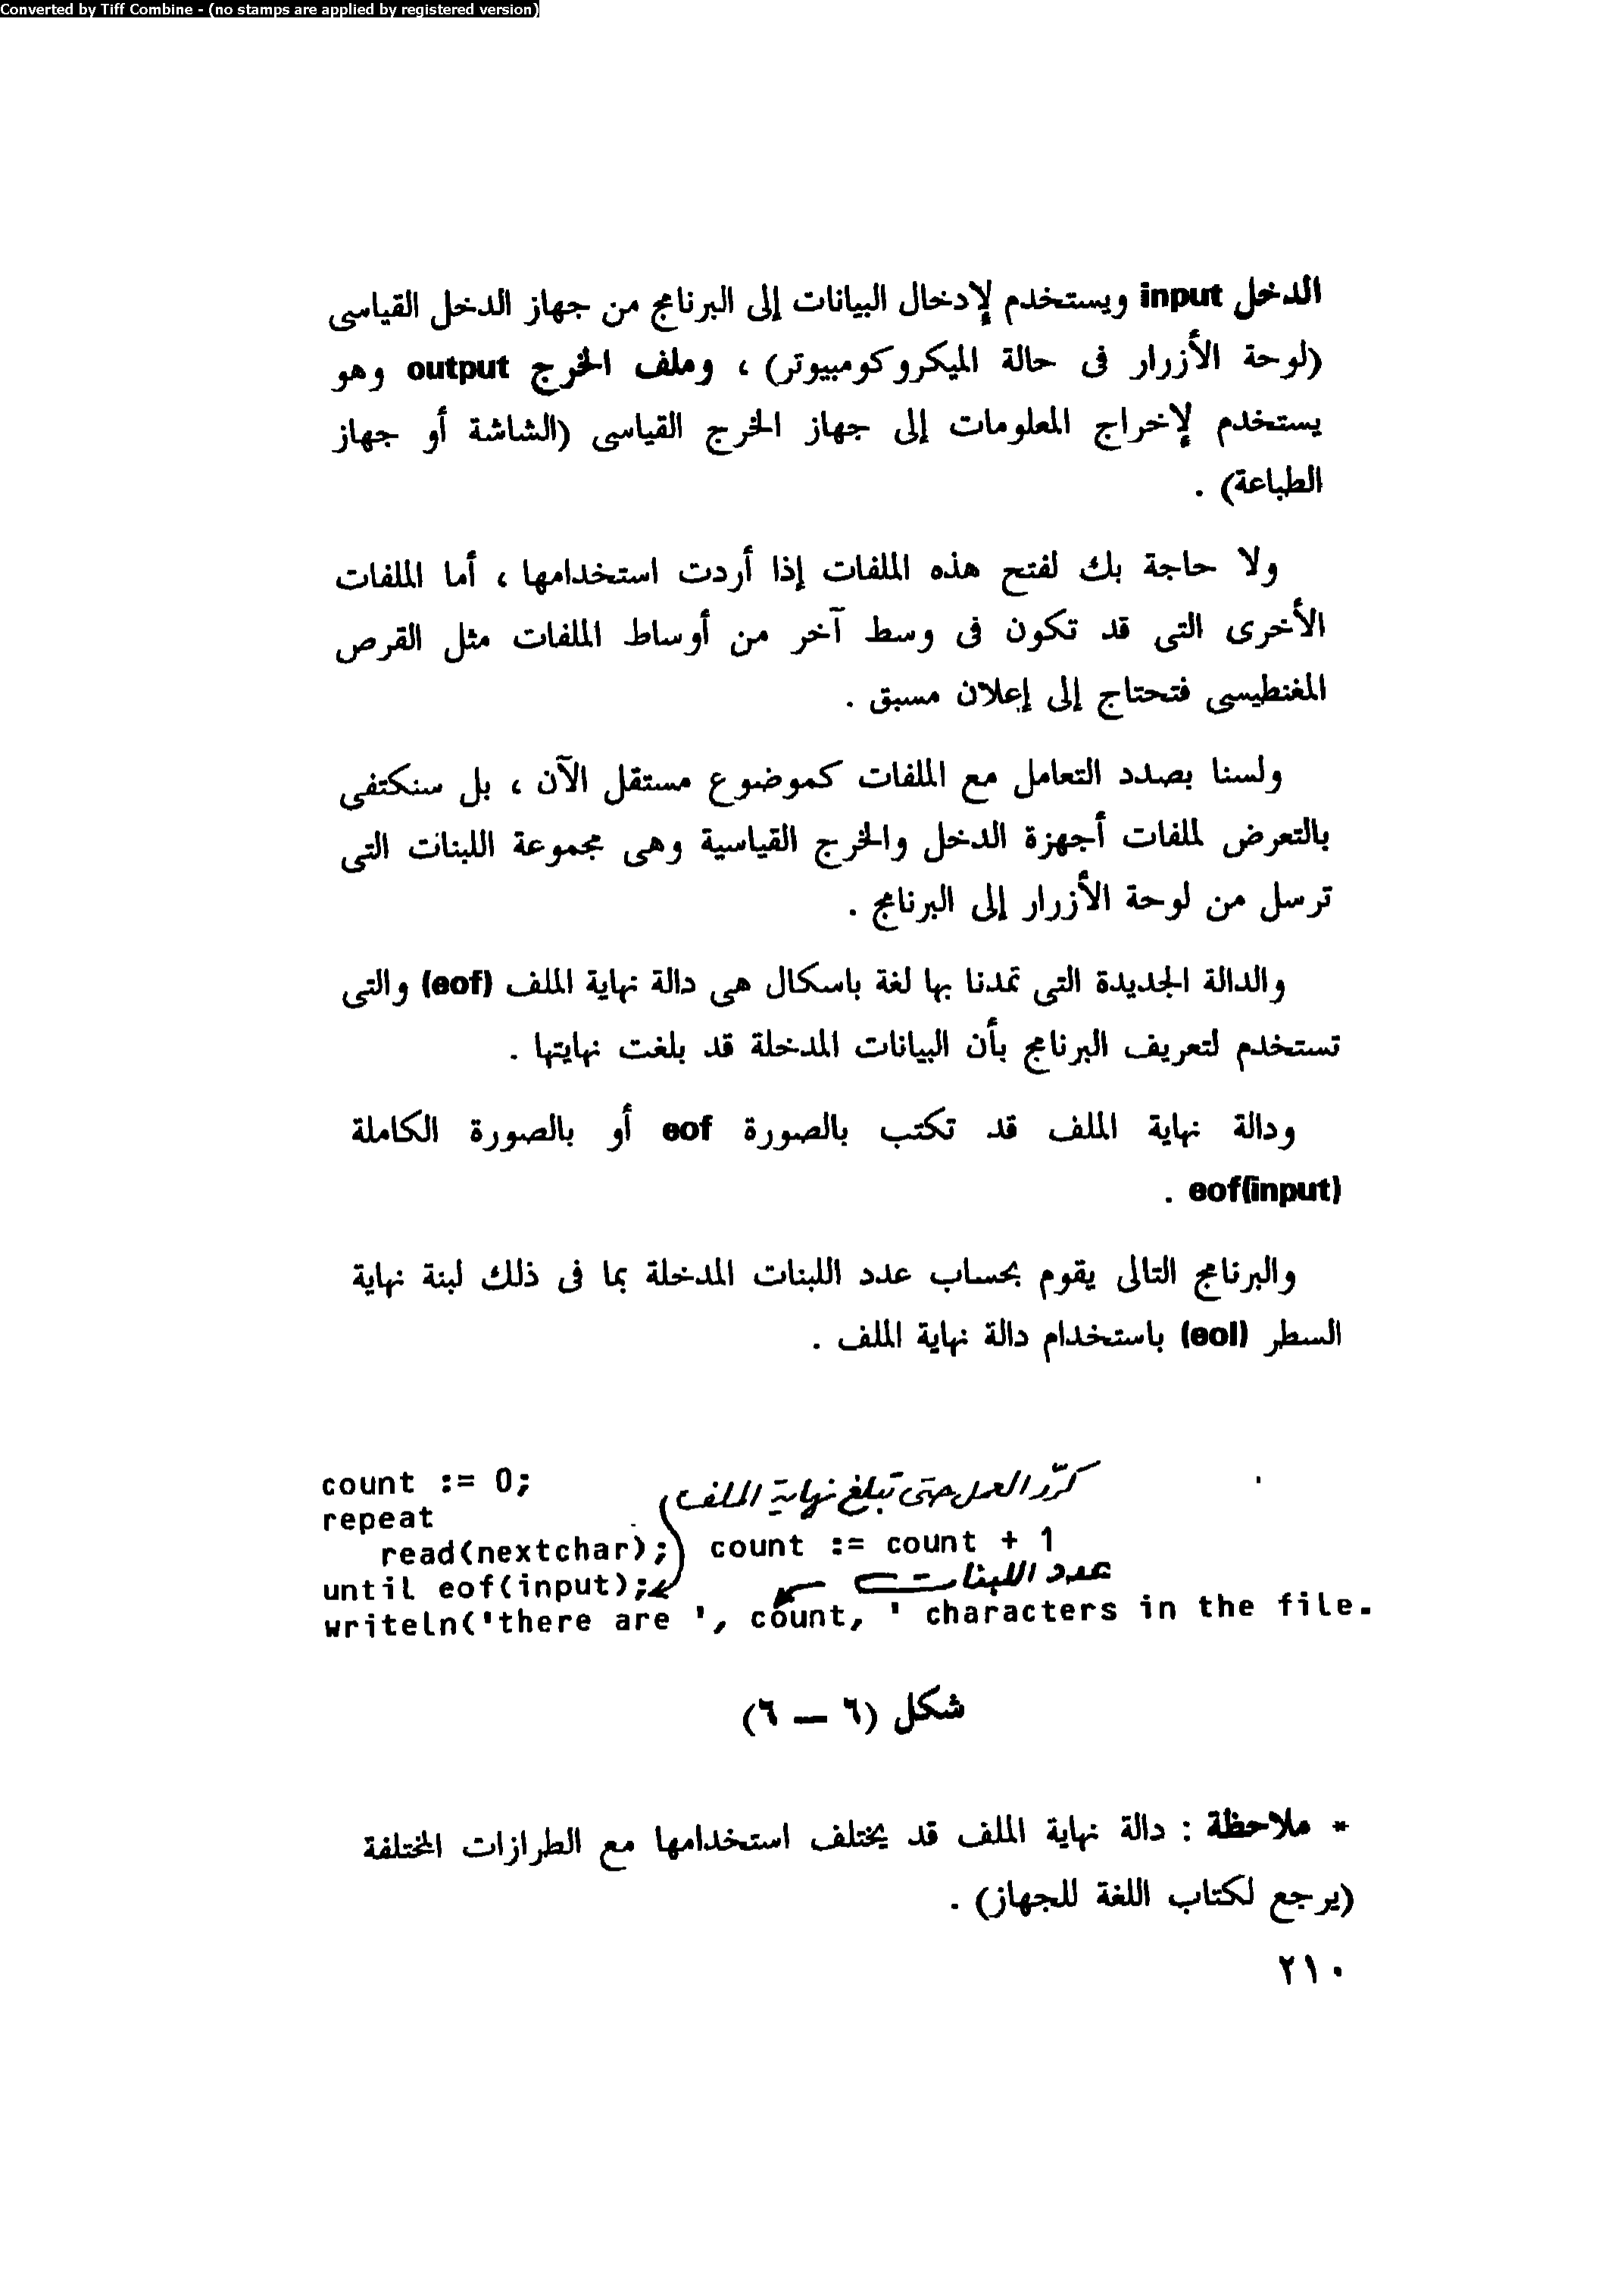 Converted by Tiff Combine - (no stamps are applied by registered version)
الدخل input ويستخدم لإدخال البيانات إلى البرنامج من جهاز الدخل القياسى
(لوحة الأزرار فى حالة الميكروكومبيوتر) ، وملف الخرج output وهو
يستخدم لإخراج المعلومات إلى جهاز الخرج القياسى (الشاشة أو جهاز
الطباعة) .
ولا حاجة بك لفتح هذه الملفات إذا أردت استخدامها ، أما الملفات
الأخرى التى قد تكون فى وسط آخر من أوساط الملفات مثل القرص
المغنطيسى فتحتاج إلى إعلان مسبق .
ولسنا بصدد التعامل مع الملفات كموضوع مستقل الآن ، بل سنكتفى
بالتعرض لملفات أجهزة الدخل والخرج القياسية وهى مجموعة اللبنات التى
ترسل من لوحة الأزرار إلى البرنامج .
والدالة الجديدة التى تمدنا بها لغة باسكال هى دالة نهاية الملف (eof) والتى
تستخدم لتعريف البرنامج بأن البيانات المدخلة قد بلغت نهايتها .
ودالة نهاية الملف قد تكتب بالصورة eof أو بالصورة الكاملة
eof(input) .
والبرنامج التالى يقوم بحساب عدد اللبنات المدخلة بما فى ذلك لبنة نهاية
السطر (eol) باستخدام دالة نهاية الملف .
count := 0;
كرّر العمل حتى تبلغ نهاية الملف
repeat
read(nextchar); count := count + 1
until eof(input);
عدد اللبنات
writeln('there are ', count, ' characters in the file.
شكل (٦ — ٦)
* ملاحظة : دالة نهاية الملف قد يختلف استخدامها مع الطرازات المختلفة
(يرجع لكتاب اللغة للجهاز) .
٢١٠